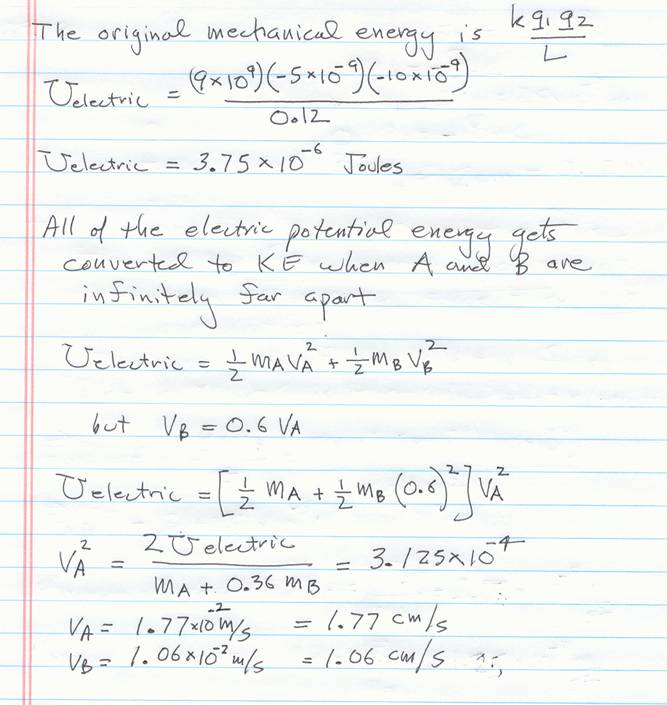 The original mechanical energy is k q₁ q₂ / L
Uelectric = (9×10⁹)(-5×10⁻⁹)(-10×10⁻⁹) / 0.12
Uelectric = 3.75 × 10⁻⁶ Joules
All of the electric potential energy gets
converted to KE when A and B are
infinitely far apart
Uelectric = 1/2 mA VA² + 1/2 mB VB²
but VB = 0.6 VA
Uelectric = [1/2 mA + 1/2 mB (0.6)²] VA²
VA² = 2 Uelectric / (mA + 0.36 mB) = 3.125×10⁻⁴
VA = 1.77×10⁻² m/s = 1.77 cm/s
VB = 1.06×10⁻² m/s = 1.06 cm/s